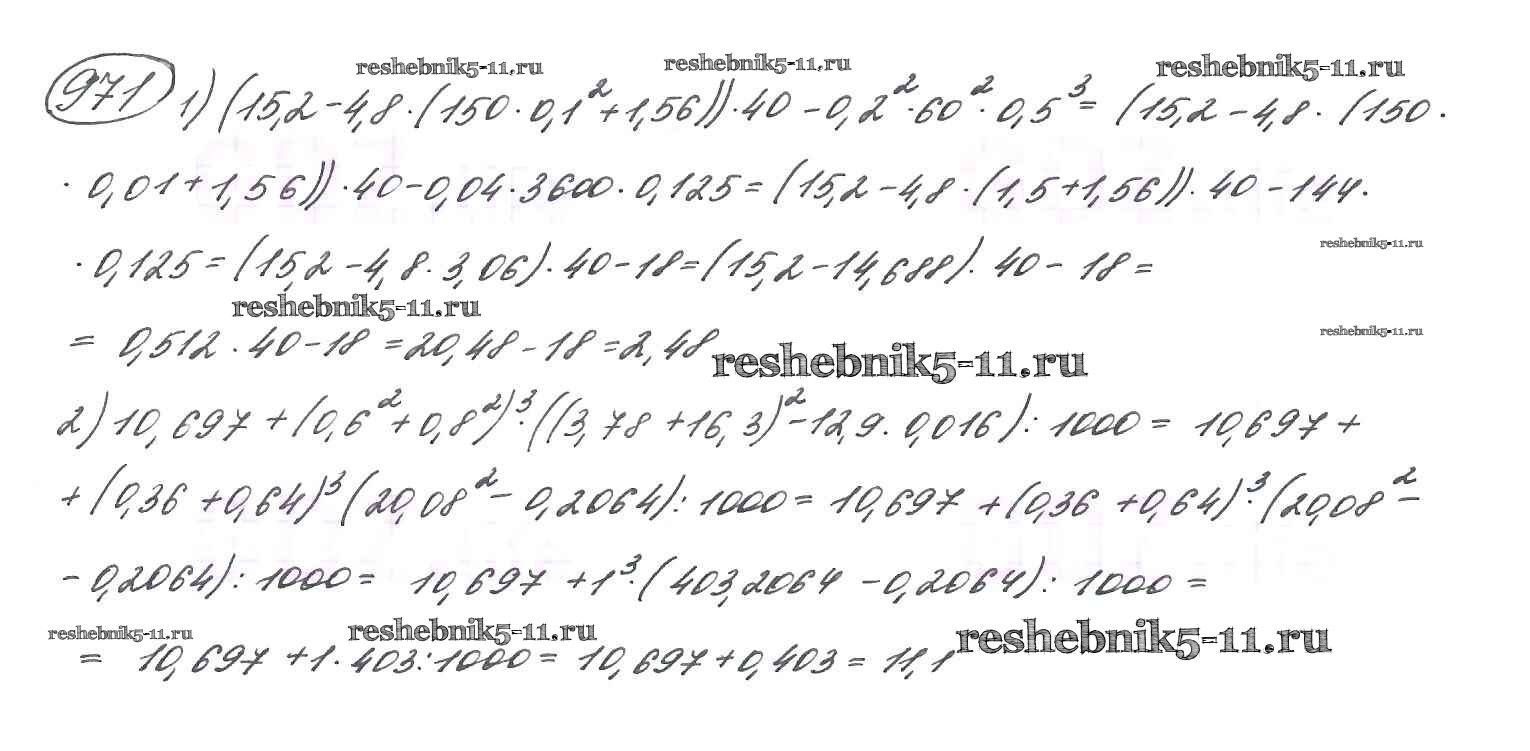 reshebnik5-11.ru reshebnik5-11.ru reshebnik5-11.ru
971 1) (15,2 - 4,8 · (150 · 0,1² + 1,56)) · 40 - 0,2² · 60² · 0,5³ = (15,2 - 4,8 · (150 ·
· 0,01 + 1,56)) · 40 - 0,04 · 3600 · 0,125 = (15,2 - 4,8 · (1,5 + 1,56)) · 40 - 144 ·
reshebnik5-11.ru
· 0,125 = (15,2 - 4,8 · 3,06) · 40 - 18 = (15,2 - 14,688) · 40 - 18 =
reshebnik5-11.ru
reshebnik5-11.ru
= 0,512 · 40 - 18 = 20,48 - 18 = 2,48
reshebnik5-11.ru
2) 10,697 + (0,6² + 0,8²)³ · ((3,78 + 16,3)² - 12,9 · 0,016) : 1000 = 10,697 +
+ (0,36 + 0,64)³ (20,08² - 0,2064) : 1000 = 10,697 + (0,36 + 0,64)³ · (20,08² -
- 0,2064) : 1000 = 10,697 + 1³ · (403,2064 - 0,2064) : 1000 =
reshebnik5-11.ru reshebnik5-11.ru reshebnik5-11.ru
= 10,697 + 1 · 403 : 1000 = 10,697 + 0,403 = 11,1